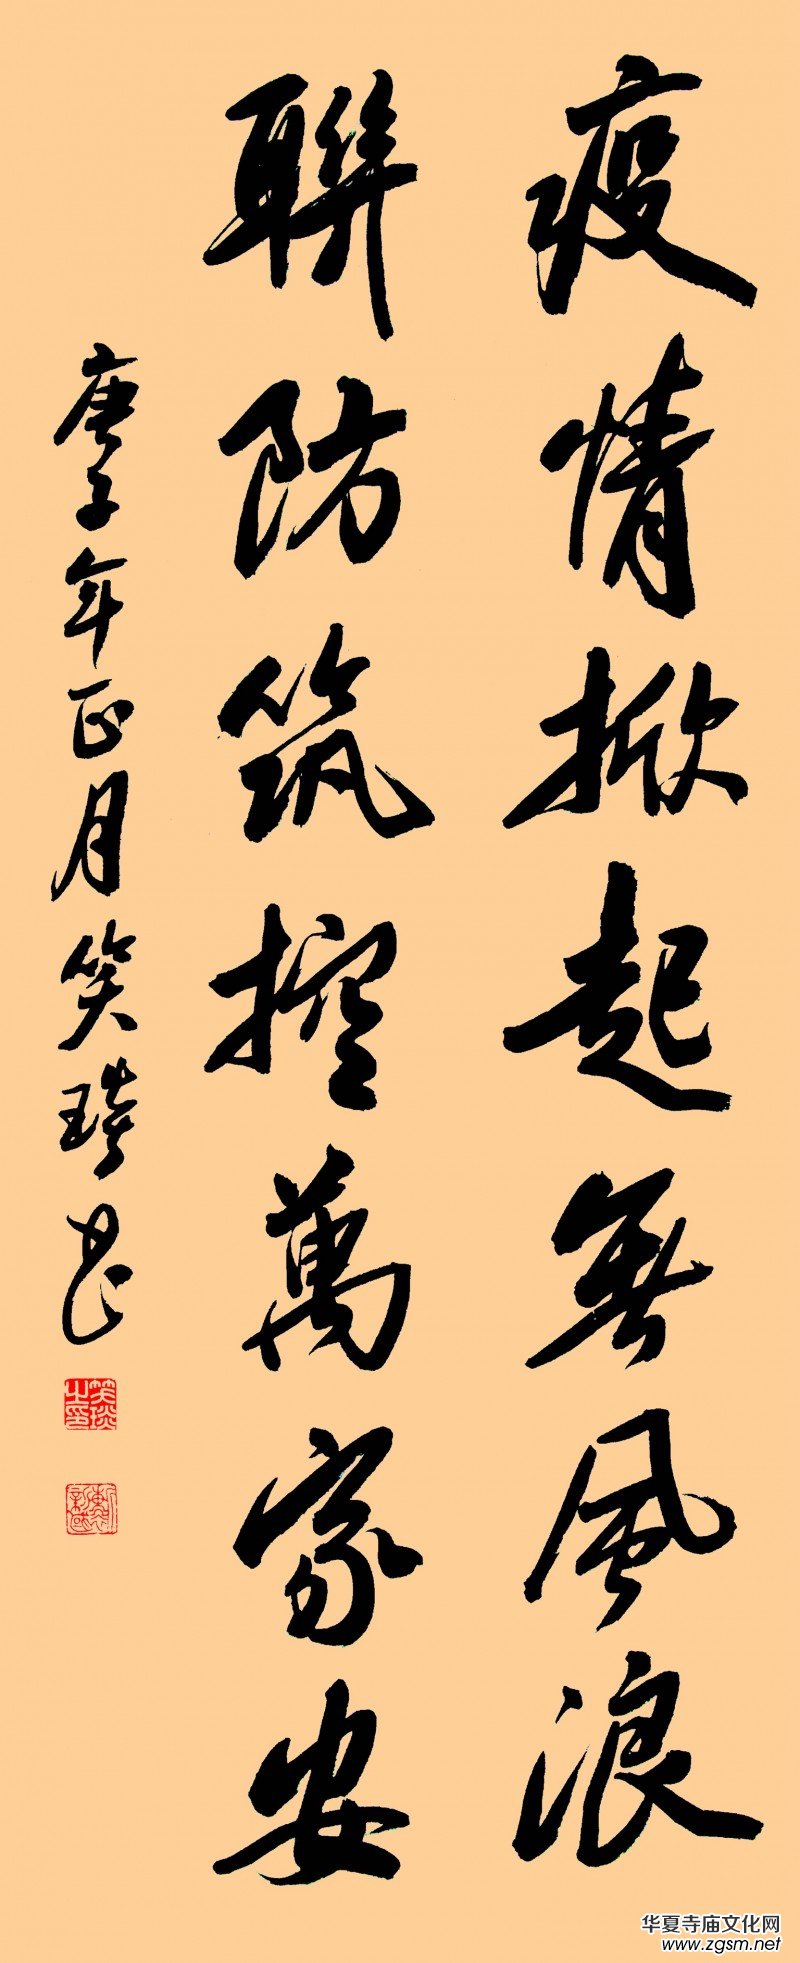 疫情掀起無風浪
聯防筑控萬家安
庚子年正月笑琰书
笑琰之印
华夏寺庙文化网
www.zgsm.net